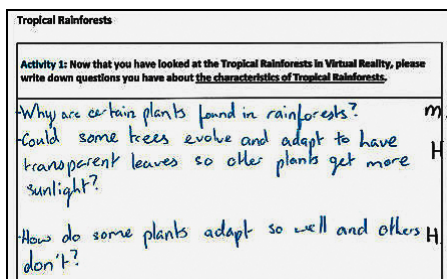 Tropical Rainforests
Activity 1: Now that you have looked at the Tropical Rainforests in Virtual Reality, please
write down questions you have about the characteristics of Tropical Rainforests.
-Why are certain plants found in rainforests? m.
-Could some trees evolve and adapt to have H
transparent leaves so other plants get more
sunlight?
-How do some plants adapt so well and others H
don't?